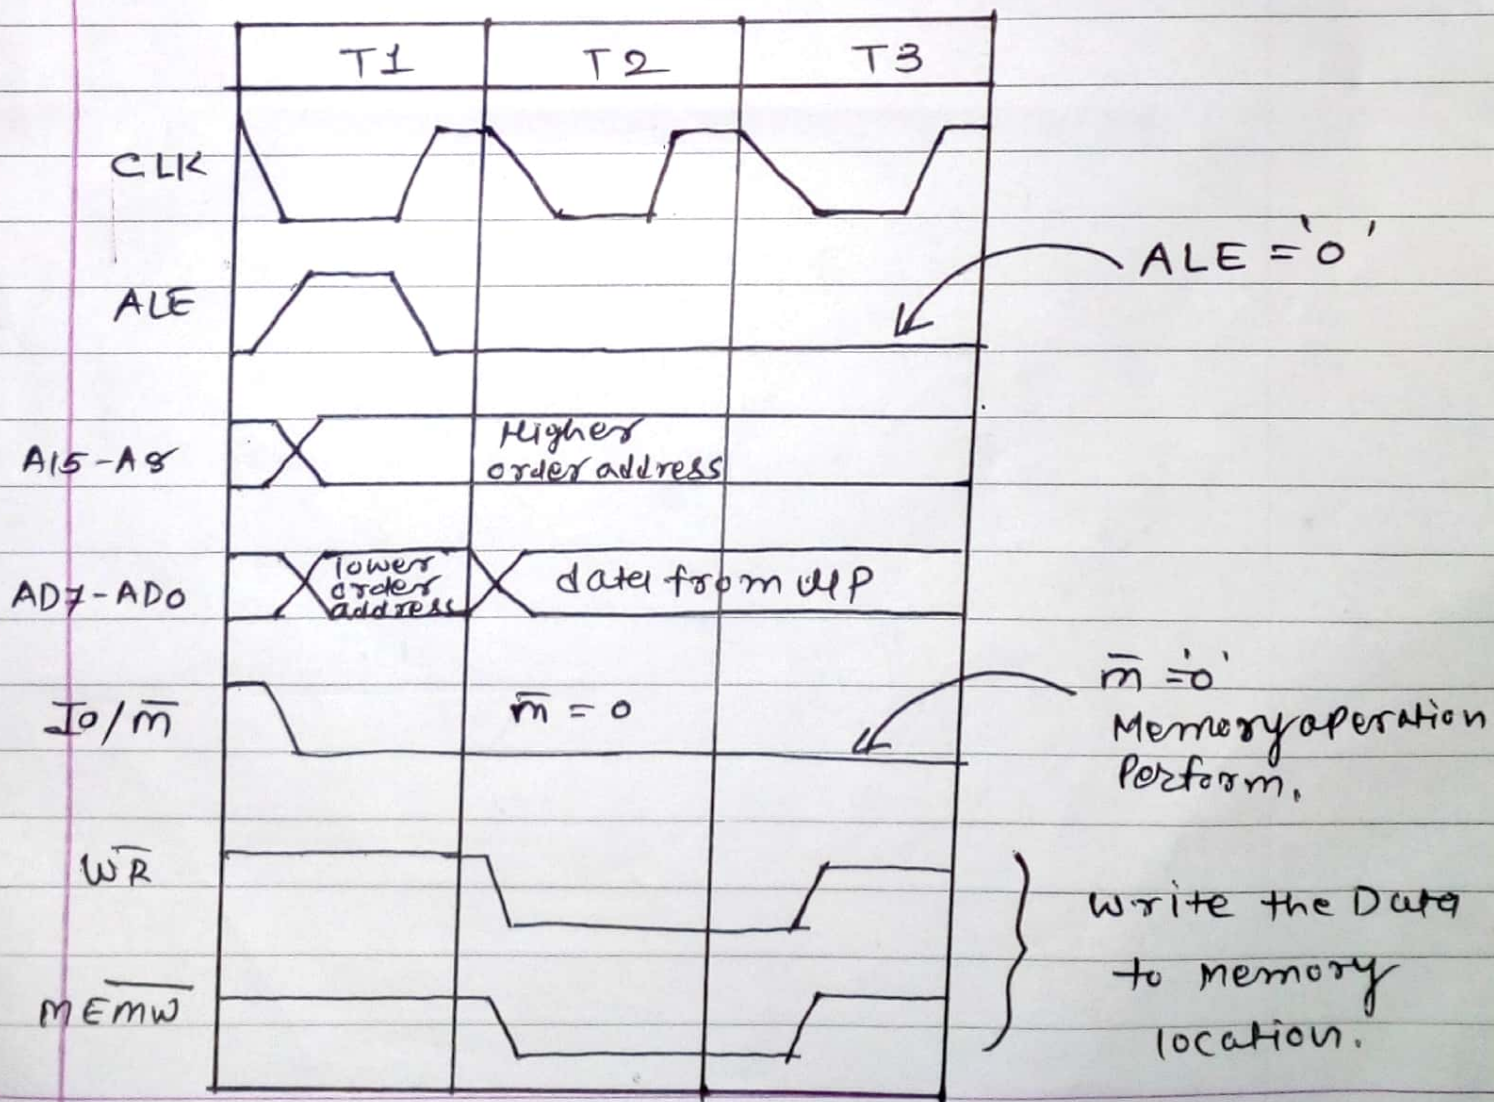 T1 T2 T3
CLK
ALE = '0'
ALE
A15-A8
Higher
order address
AD7-AD0
lower
order
address
data from MP
I0/m̅
m̅ = 0
m̅ = '0'
Memory operation
Perform.
W̅R̅
Write the Data
to memory
location.
MEM̅W̅